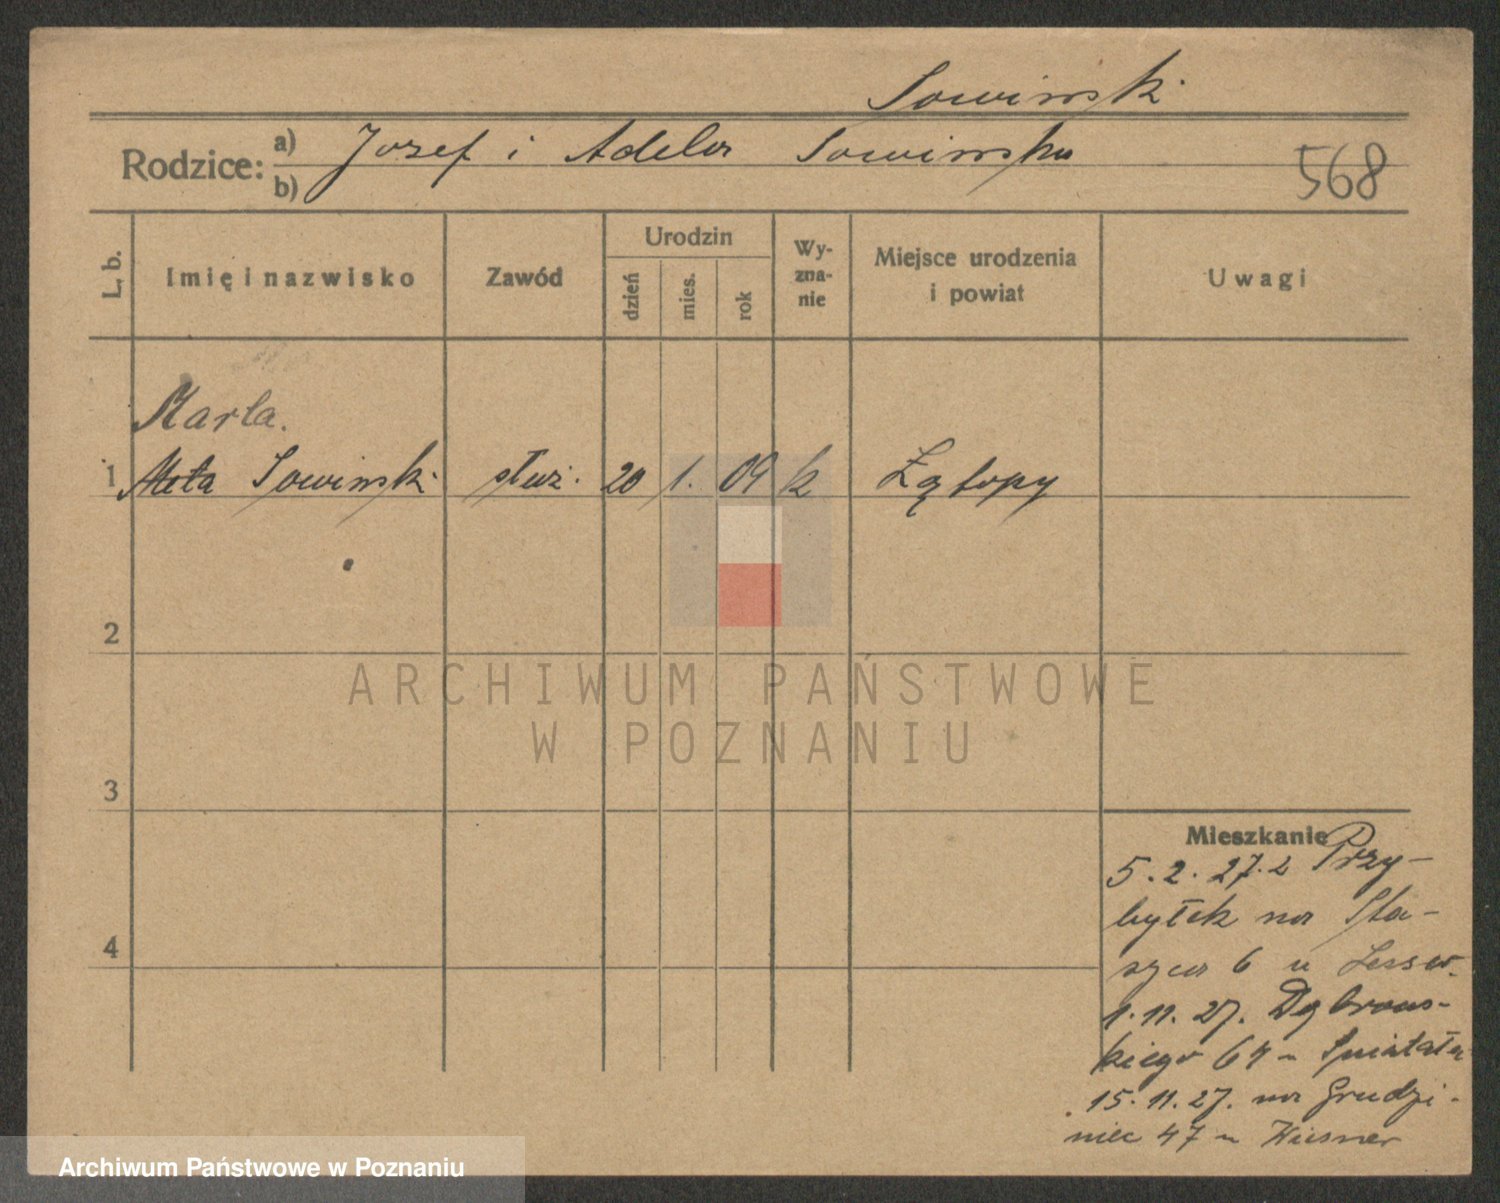 Sowinski
Rodzice: a) Jozef i Adela Sowinska
b)
568
L. b. Imię i nazwisko Zawód Urodzin dzień mies. rok Wy-zna-nie Miejsce urodzenia i powiat Uwagi
Marta.
1 Meta Sowinski służ. 20 1. 09 k Łątopy
2
ARCHIWUM PAŃSTWOWE
W POZNANIU
3
Mieszkanie
5.2.27. z Przy-
byłek na Sta-
szyca 6 u
1.11.27. Dąbrows-
kiego 64 u
15.11.27. na Grudzi-
niec 47 u
4
Archiwum Państwowe w Poznaniu